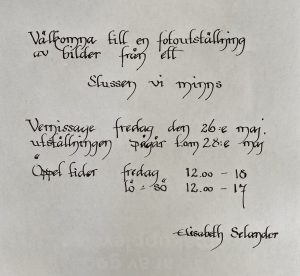 Välkomna till en fotoutställning
av bilder från ett
Slussen vi minns
Vernissage fredag den 26:e maj.
utställningen pågår t.om 28:e maj
Öppet tider fredag 12.00 - 18
lö - sö 12.00 - 17
Elisabeth Selander